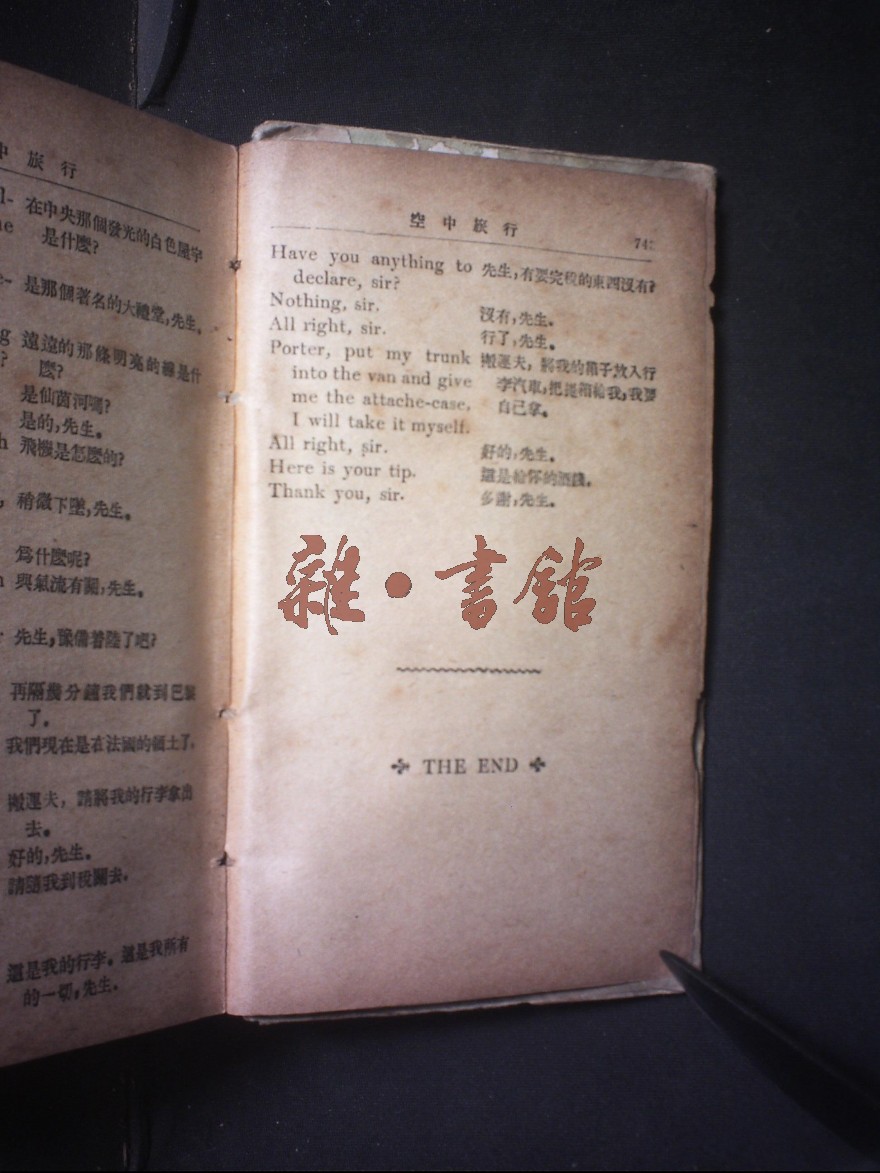 中 旅 行
在中央那個發光的白色屋宇
是什麽?
是那個著名的大禮堂,先生。
遠遠的那條明亮的線是什
麽?
是仙茵河嗎?
是的,先生。
飛機是怎麽的?
稍微下墜,先生。
爲什麽呢?
與氣流有關,先生。
先生,豫備着陸了吧?
再隔幾分鐘我們就到巴黎
了。
我們現在是在法國的領土了。
搬運夫, 請將我的行李拿出
去。
好的,先生。
請隨我到稅關去。
這是我的行李。這是我所有
的一切,先生。
空 中 旅 行
Have you anything to 先生,有要完稅的東西沒有?
declare, sir?
Nothing, sir. 沒有,先生。
All right, sir. 行了,先生。
Porter, put my trunk 搬運夫, 將我的箱子放入行
into the van and give 李汽車,把提箱給我,我要
me the attache-case. 自己拿。
I will take it myself.
All right, sir. 好的,先生。
Here is your tip. 這是給你的酒錢。
Thank you, sir. 多謝,先生。
雜·書館
THE END